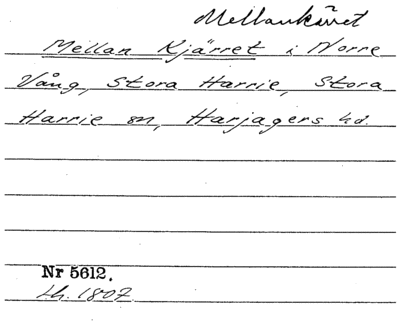 Mellankärret
Mellan Kjärret i Norre
Vång, Stora Harrie, Stora
Harrie sn, Harjagers hd.
Nr 5612.
Lh. 1807.